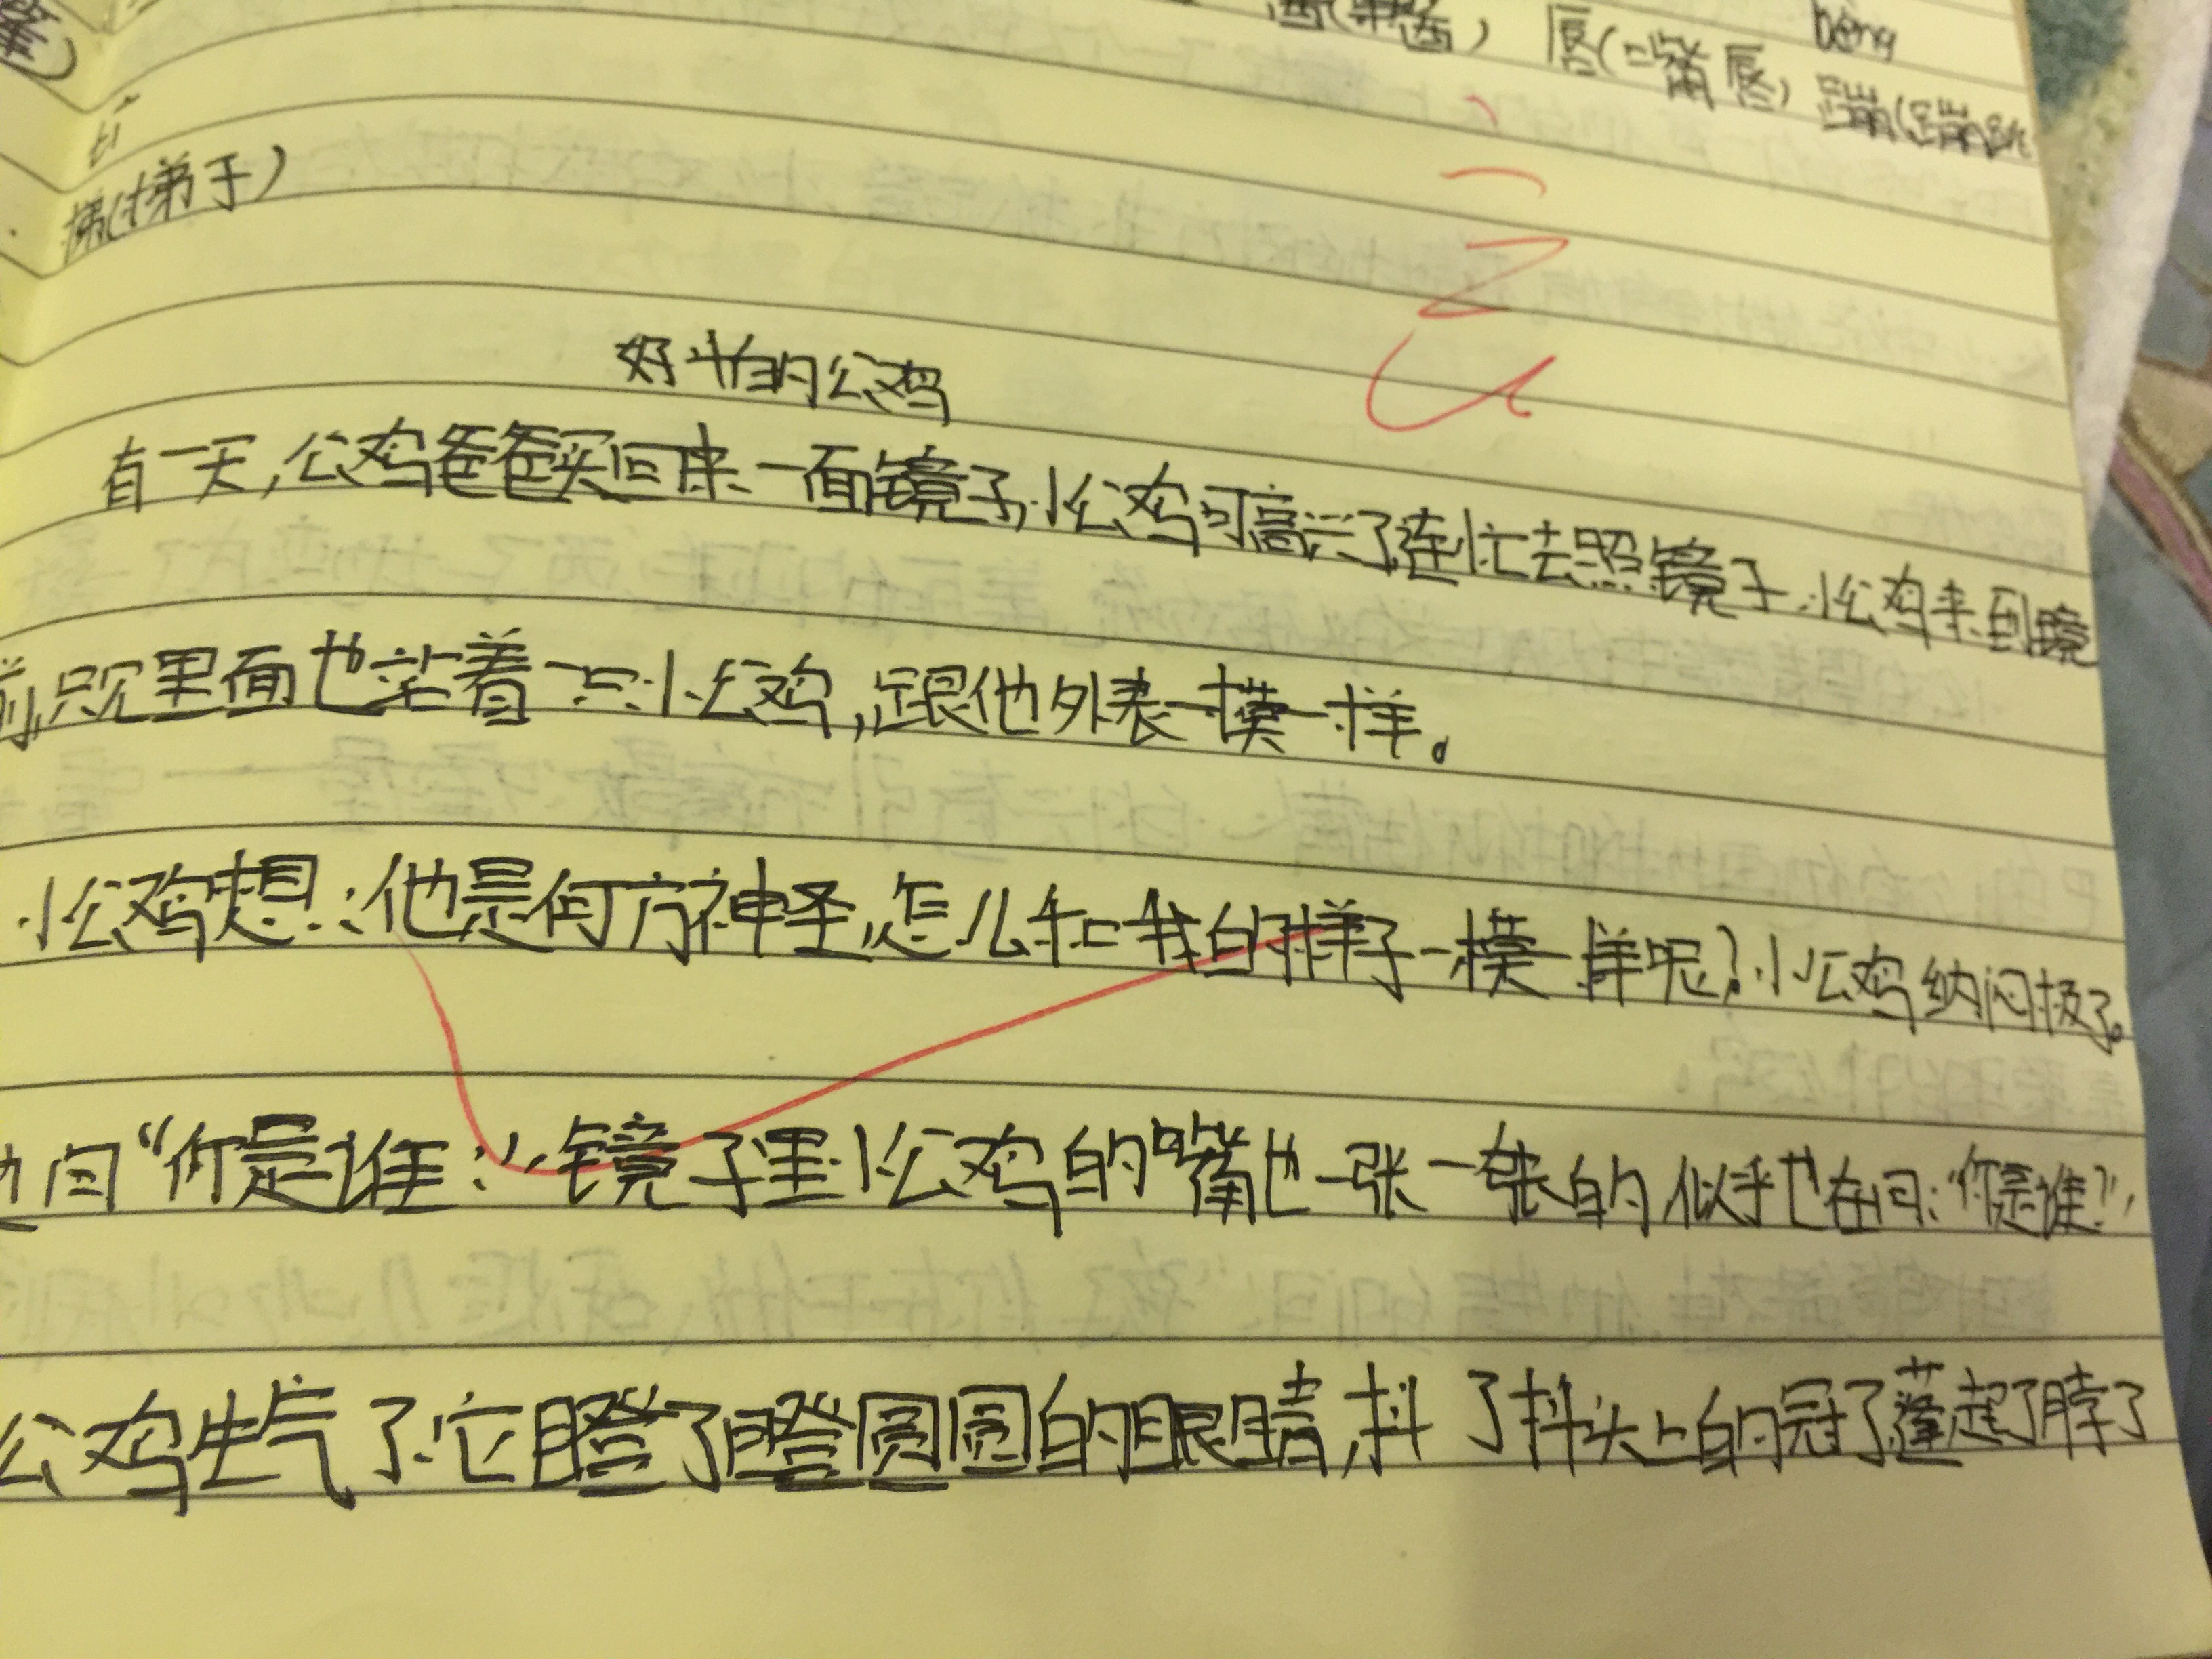 唇(嘴唇) 蹦(蹦跳
bèng
tī
梯(梯子)
好斗的公鸡
有一天,公鸡爸爸买回来一面镜子,小公鸡可高兴了,连忙去照镜子.小公鸡来到镜
前,只见里面也站着一只小公鸡,跟他外表一模一样。
小公鸡想:他是何方神圣,怎么和我的样子一模一样呢?小公鸡纳闷极了。
问“你是谁:”镜子里小公鸡的嘴也一张一张的,似乎也在问:“你是谁?”
公鸡生气了.它瞪了瞪圆圆的眼睛,抖了抖头上的冠了,蓬起了脖了